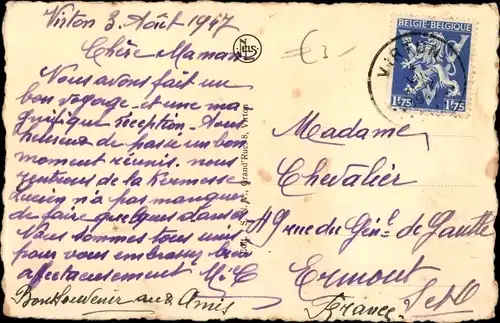 Virton 3 Août 1947
Chère Maman
Nous avons fait un
bon voyage et une ma
gnifique réception. Tous
heureux de passer un bon
moment réunis. nous
rentrons de la Kermesse
Lucien n'a pas manqué
de faire quelques danses
Nous sommes tous unis
pour vous embrasser bien
affectueusement M.C
Bon Souvenir aux Amis
NELS
Grand'Rue, 8, Virton
£3-
BELGIE-BELGIQUE
1F75 1F75
Madame
Chevalier
49 rue du Génl de Gaulle
Ermont S et O
France